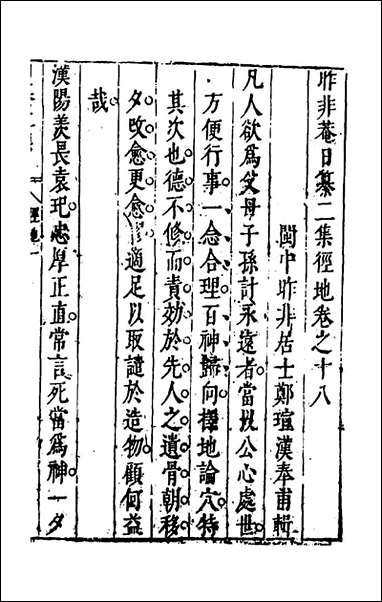 昨非菴日纂二集徑地卷之十八
閩中昨非居士鄭瑄漢奉甫輯
凡人欲爲父母子孫計永遠者當以公心處世
方便行事一念合理百神歸向擇地論穴特
其次也德不修而責効於先人之遺骨朝移
夕改愈更愈謬適足以取譴於造物顧何益
哉
漢陽羨長袁玘忠厚正直常言死當爲神一夕